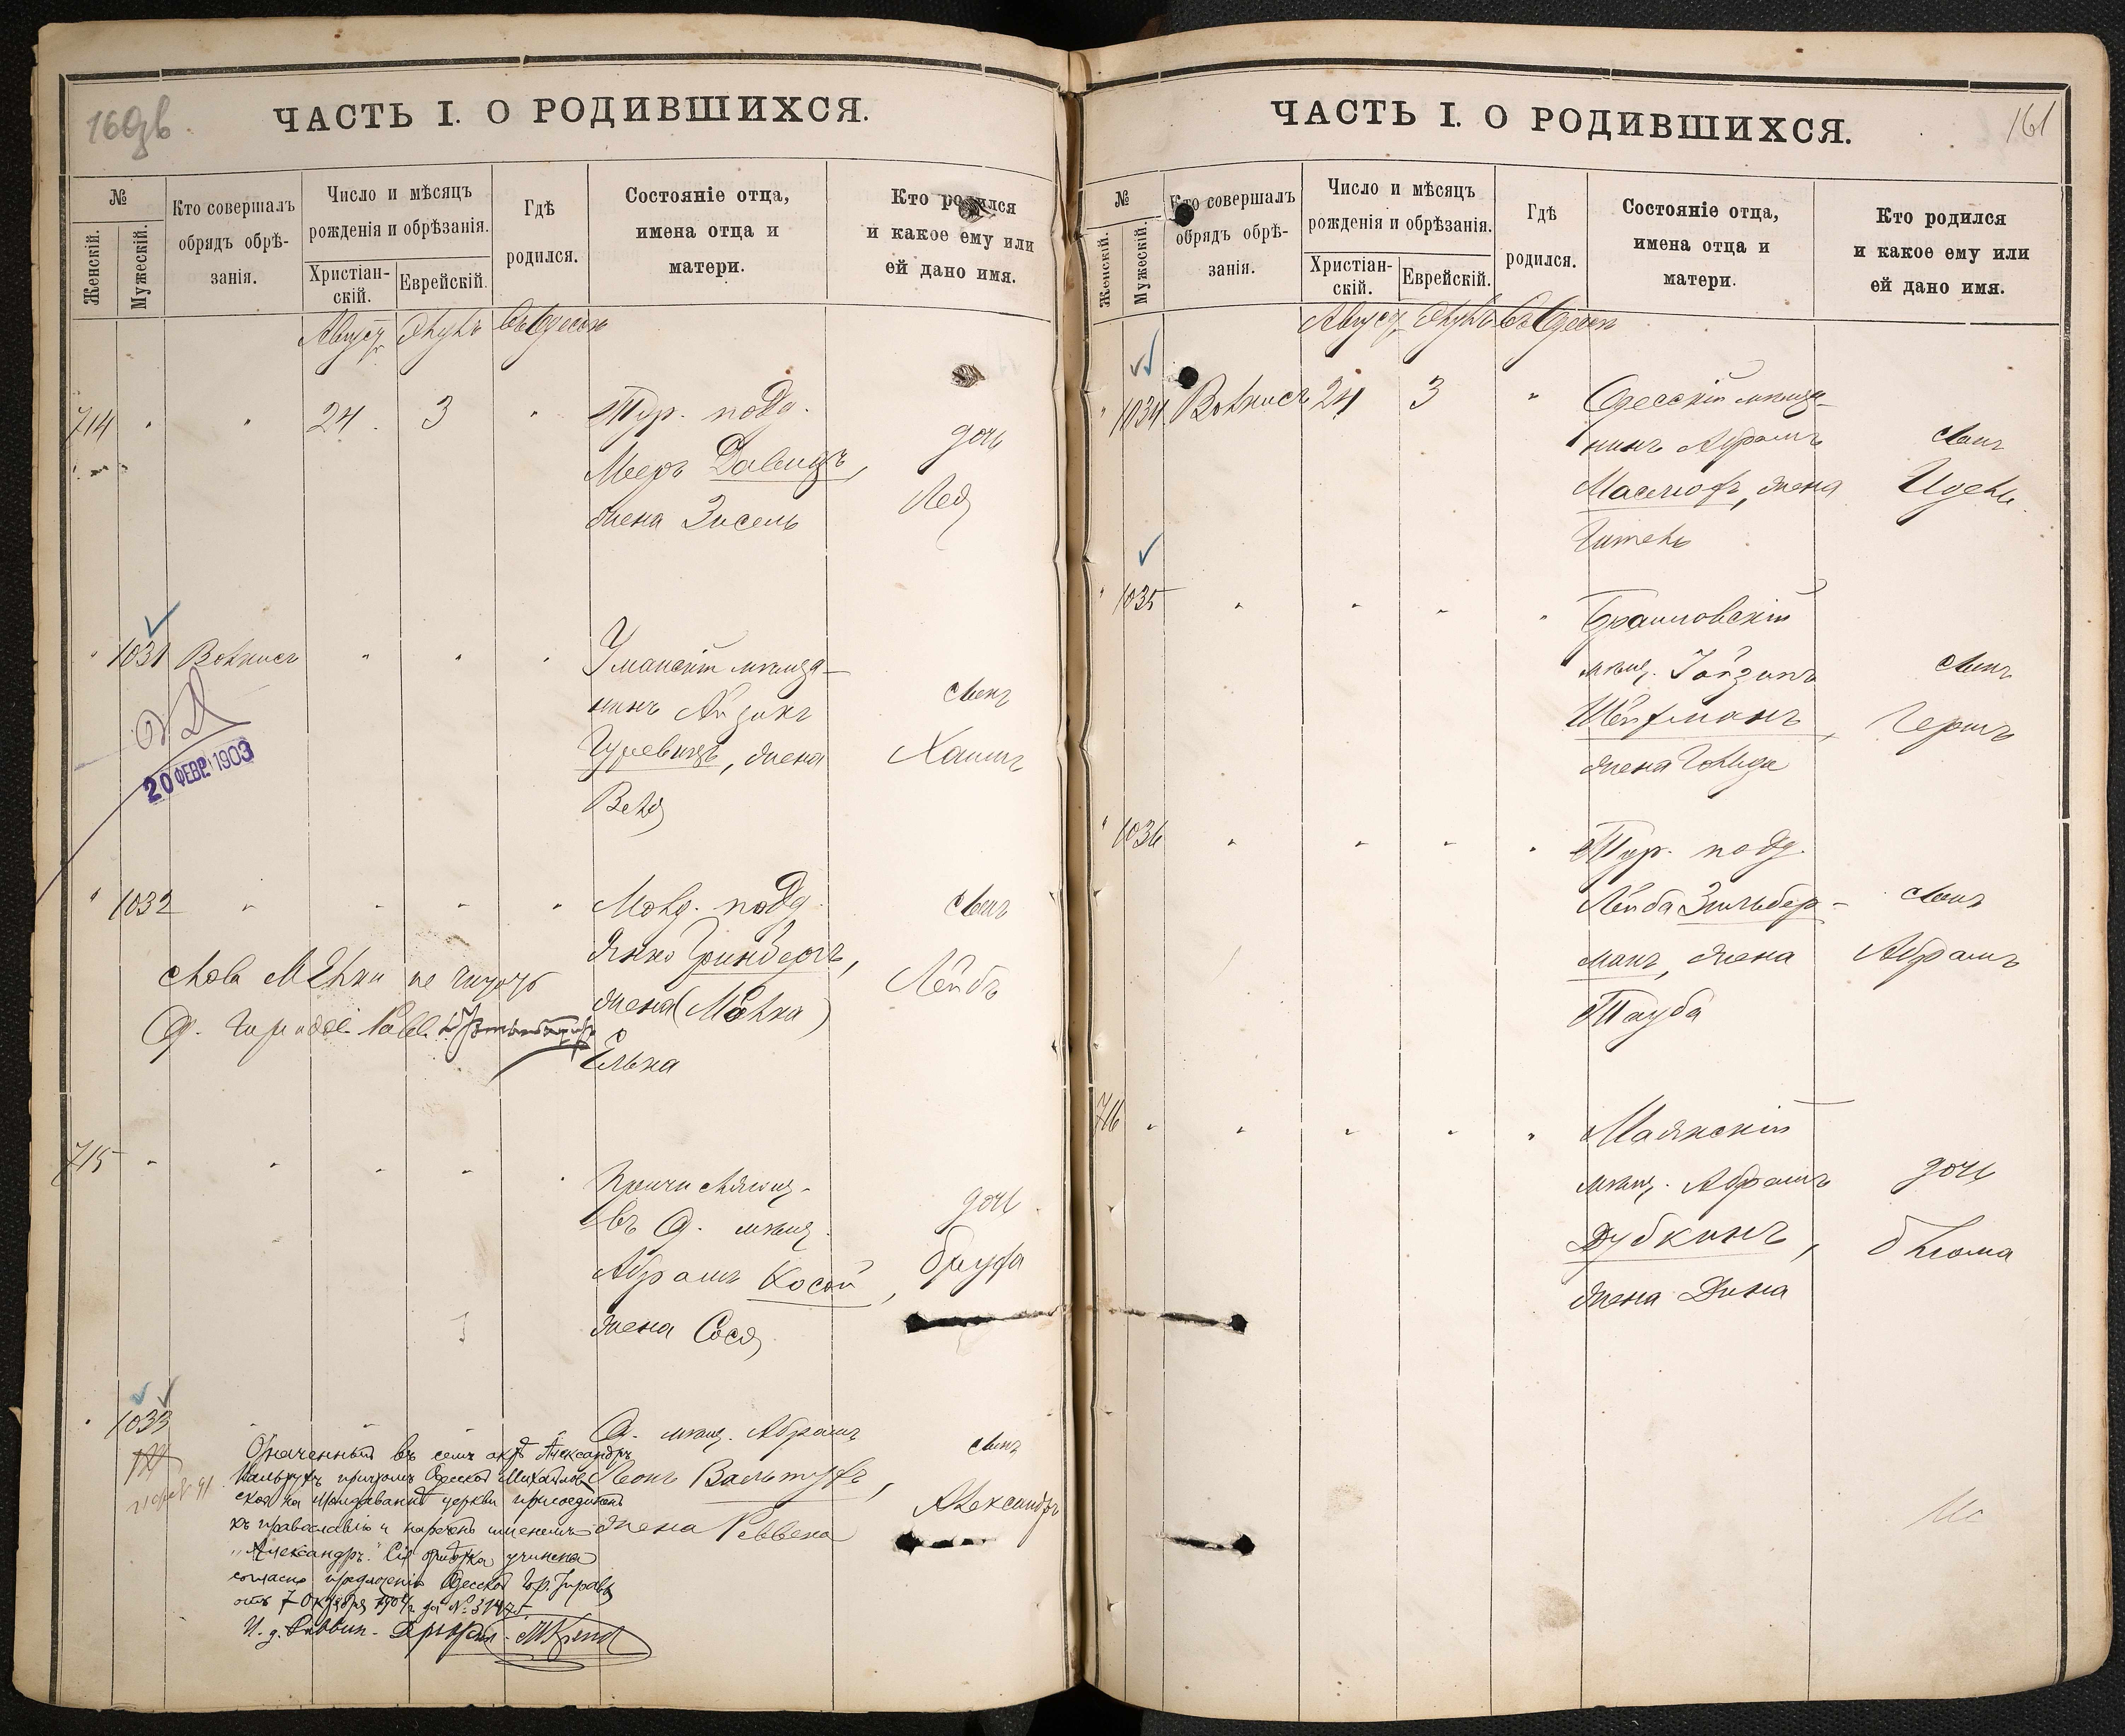 160об.
ЧАСТЬ I. О РОДИВШИХСЯ.
№
Женскій.
Мужескій.
Кто совершалъ
обрядъ обрѣ-
занія.
Число и мѣсяцъ
рожденія и обрѣзанія.
Христіан-
скій.
Еврейскій.
Гдѣ
родился.
Состояніе отца,
имена отца и
матери.
Кто родился
и какое ему или
ей дано имя.
Августъ Элулъ въ Одессѣ
714 " " 24. 3 "
Тур. подд.
Мееръ Давидъ,
жена Зисель
дочь
Лея
" 1031 " " "
Уманскій мѣща-
нинъ Айзикъ
Гуревичъ, жена
Веля
сынъ
Хаимъ
20 ФЕВР. 1903
" 1032 " " " "
Молд. подд.
Янко Гринбергъ,
жена (Малка)
Елька
сынъ
Лейбъ
Слова Малка не читать
О. Городской Раввинъ
715 " " " " "
Причисляющ.
въ О. мѣщ.
Абрамъ Косой,
жена Сося
дочь
Бруха
" 1033 " " "
О. мѣщ. Абрамъ
Леонъ Вальтухъ,
жена Ревекка
сынъ
Александръ
Означенный въ семъ актѣ Александръ
Вальтухъ причтомъ Одесской Михайлов-
ской на Молдаванкѣ церкви присоединенъ
къ православію и нареченъ именемъ
"Александръ." Сія отмѣтка учинена
согласно предложенію Одесской Гор. Управы
отъ 7 Октября
И. д. Раввин.
161
ЧАСТЬ I. О РОДИВШИХСЯ.
№
Женскій.
Мужескій.
Кто совершалъ
обрядъ обрѣ-
занія.
Число и мѣсяцъ
рожденія и обрѣзанія.
Христіан-
скій.
Еврейскій.
Гдѣ
родился.
Состояніе отца,
имена отца и
матери.
Кто родился
и какое ему или
ей дано имя.
Августъ Элулъ въ Одессѣ
" 1034 24 3 "
Одесскій мѣща-
нинъ Абрамъ
Маслюфъ, жена
Гитель
сынъ
Идель
" 1035 " " " "
Браиловскій
мѣщ. Іойзипъ
Шейфманъ,
жена Голда
сынъ
Гершъ
" 1036 " " " "
Тур. подд.
Лейба Зильбер-
манъ, жена
Тауба
сынъ
Абрамъ
716 " " " " "
Маянскій
мѣщ. Абрамъ
Дубкинъ,
жена Дина
дочь
Блюма